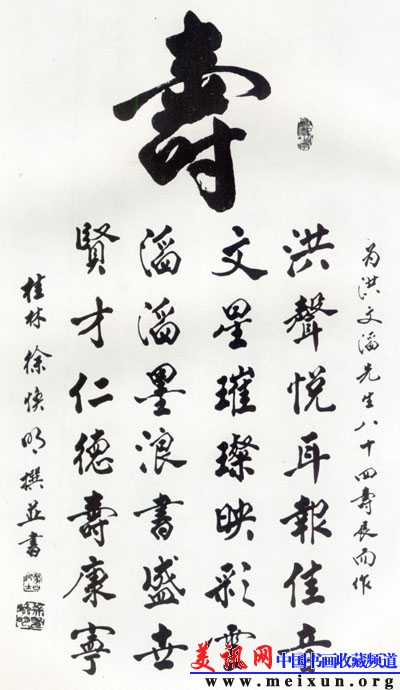 壽
为洪文滔先生八十四壽辰而作
洪聲悦耳報佳音
文星璀璨映彩雲
滔滔墨浪書盛世
賢才仁德壽康寧
桂林徐焕明撰並書
美讯网 中国书画收藏频道
www.meixun.org